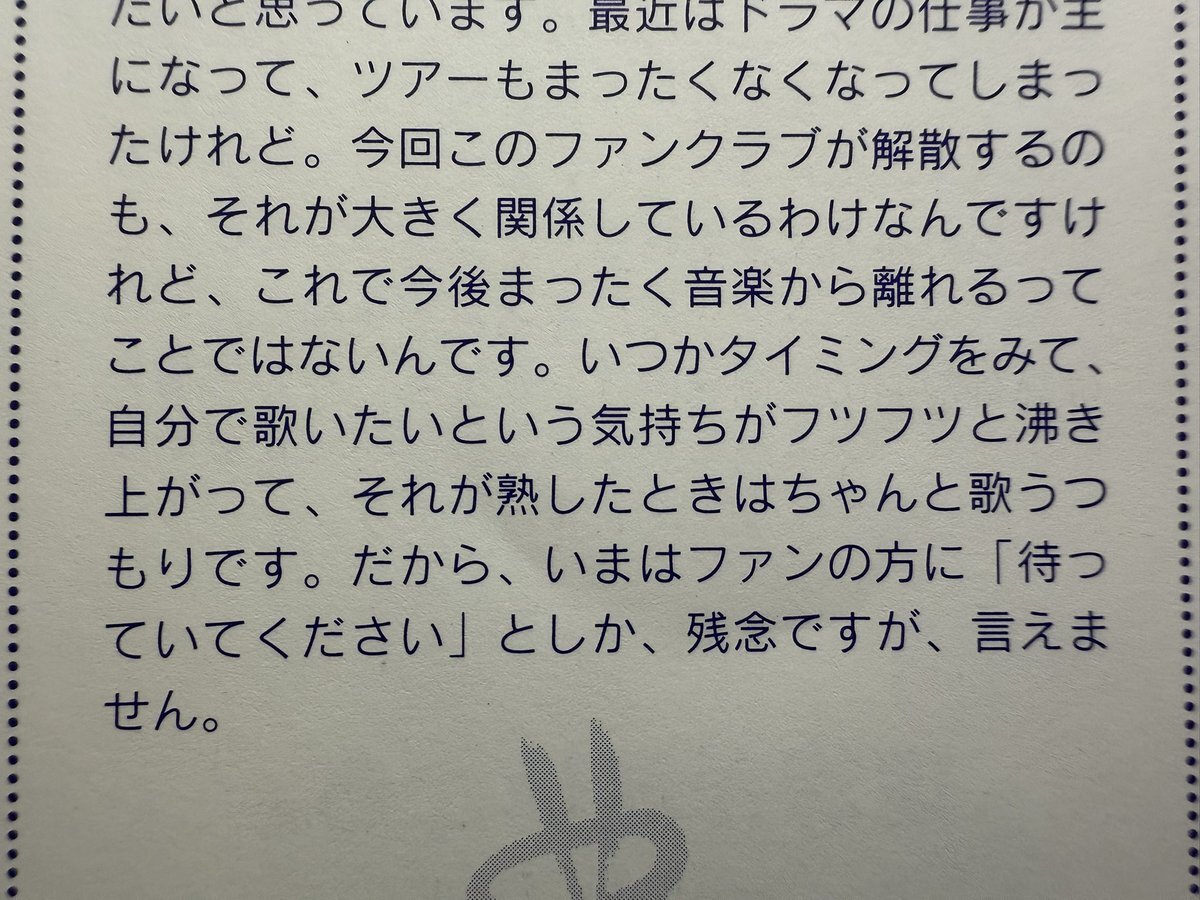 たいと思っています。最近はドラマの仕事が主
になって、ツアーもまったくなくなってしまっ
たけれど。今回このファンクラブが解散するの
も、それが大きく関係しているわけなんですけ
れど、これで今後まったく音楽から離れるって
ことではないんです。いつかタイミングをみて、
自分で歌いたいという気持ちがフツフツと沸き
上がって、それが熟したときはちゃんと歌うつ
もりです。だから、いまはファンの方に「待っ
ていてください」としか、残念ですが、言えま
せん。